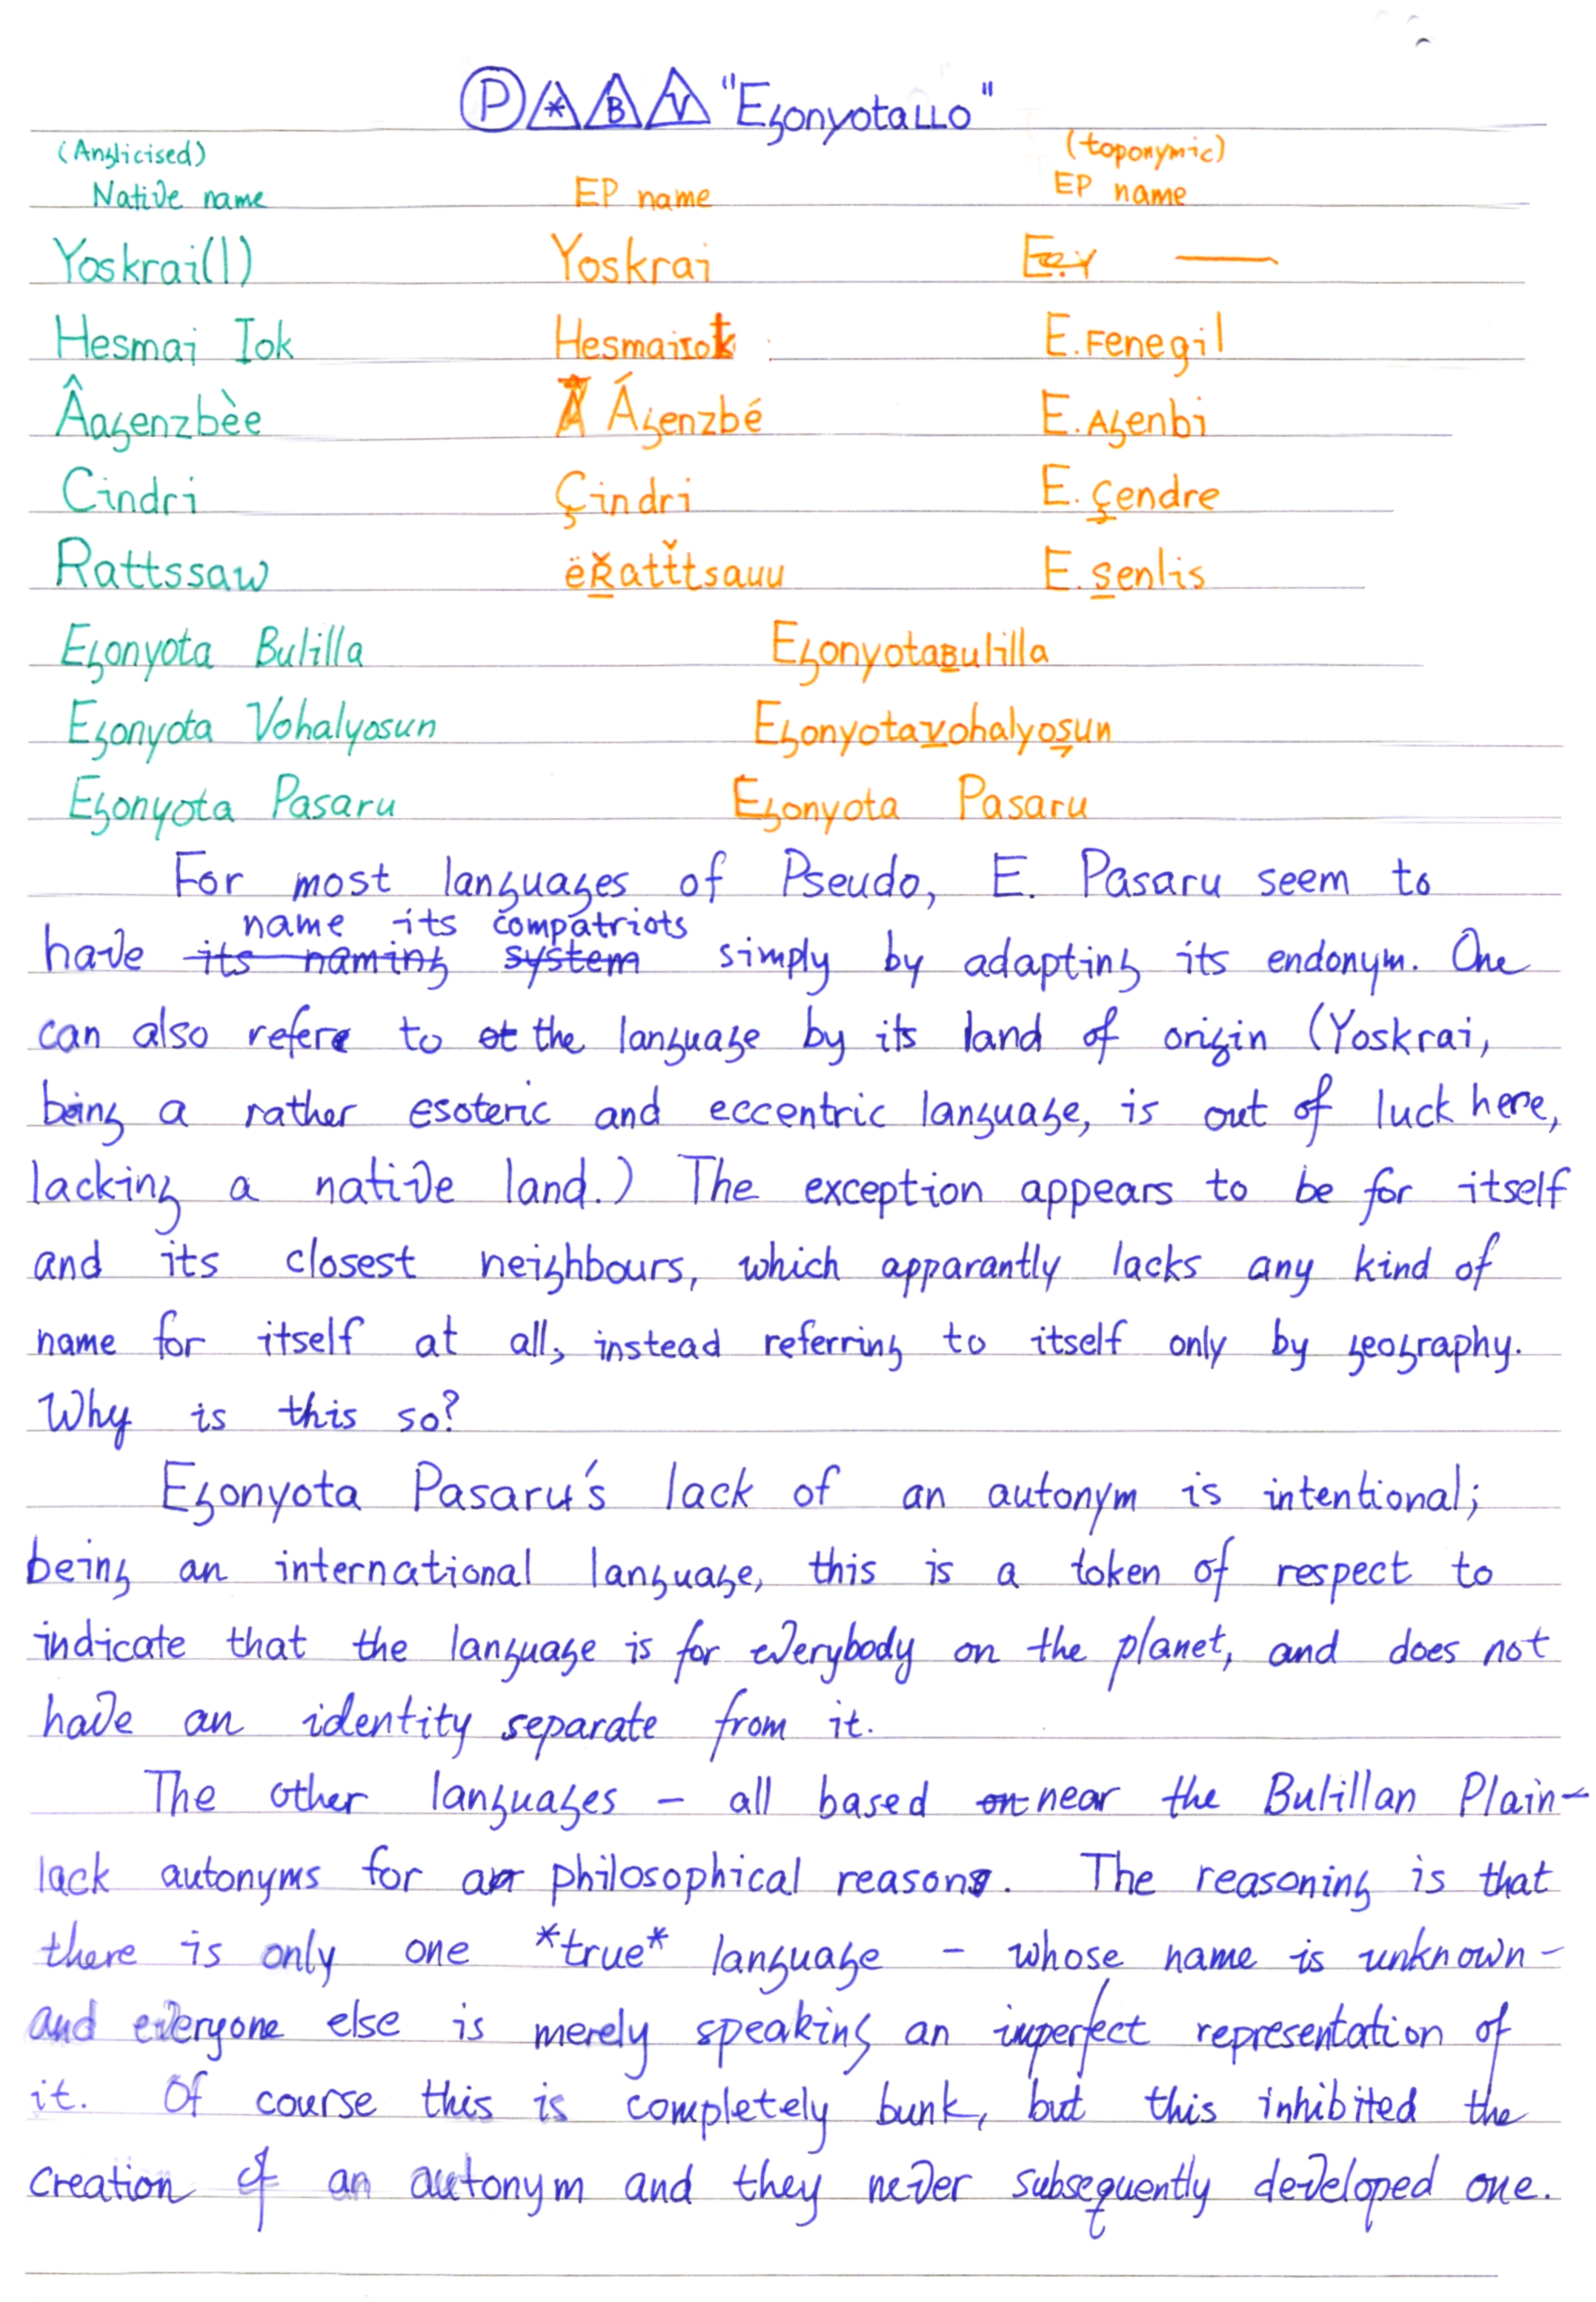 Ⓟ * B V "EgonyotaLLO"
(Anglicised) (toponymic)
Native name EP name EP name
Yoskrai(l) Yoskrai ~~E.Y~~ —
Hesmai Iok Hesmaiıok E.Fenegil
Âagenzbèe Ágenzbé E.Agenbi
Cindri Çindri E.çendre
Rattssaw ëŘatťtsauu E.senlis
Egonyota Bulilla EgonyotaBulilla
Egonyota Vohalyosun Egonyotavohalyoşun
Egonyota Pasaru Egonyota Pasaru
For most languages of Pseudo, E. Pasaru seem to
name its compatriots
have ~~its naming system~~ simply by adapting its endonym. One
can also refere to the language by its land of origin (Yoskrai,
being a rather esoteric and eccentric language, is out of luck here,
lacking a native land.) The exception appears to be for itself
and its closest neighbours, which apparantly lacks any kind of
name for itself at all, instead referring to itself only by geography.
Why is this so?
Egonyota Pasaru's lack of an autonym is intentional;
being an international language, this is a token of respect to
indicate that the language is for everybody on the planet, and does not
have an identity separate from it.
The other languages – all based ~~on~~ near the Bulillan Plain –
lack autonyms for philosophical reasons. The reasoning is that
there is only one *true* language – whose name is unknown –
and everyone else is merely speaking an imperfect representation of
it. Of course this is completely bunk, but this inhibited the
creation of an autonym and they never subsequently developed one.